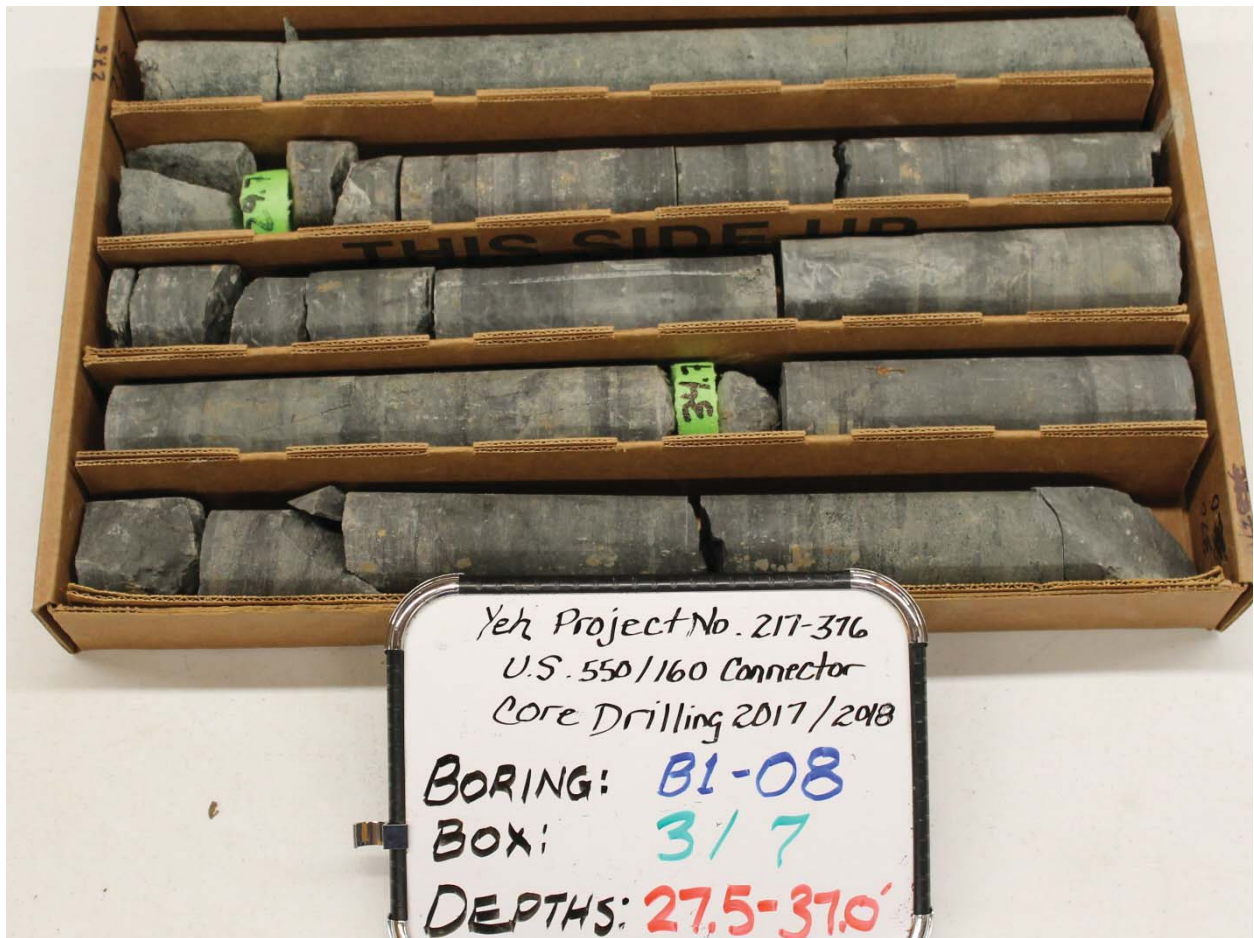 29.7
THIS SIDE UP
34.7
Yeh Project No. 217-376
U.S. 550/160 Connector
Core Drilling 2017/2018
BORING: B1-08
BOX: 3/7
DEPTHS: 27.5-37.0'